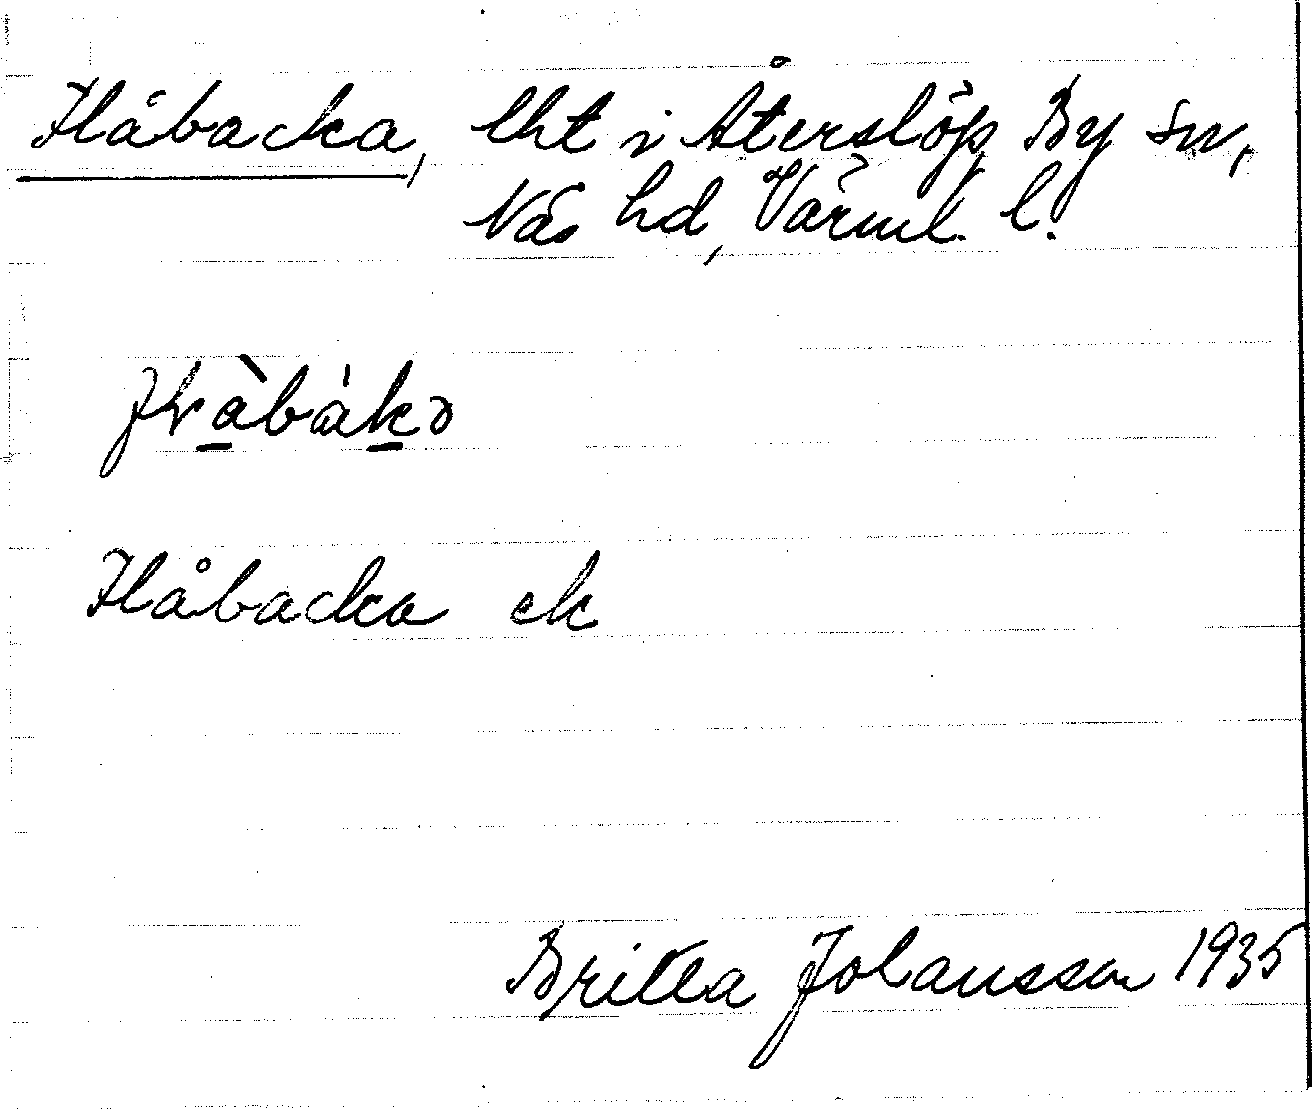 Håbacka, lht i Återslöp By sn,
Näs hd, Värml. l.
Håbacka ek
Britta Johansson 1935